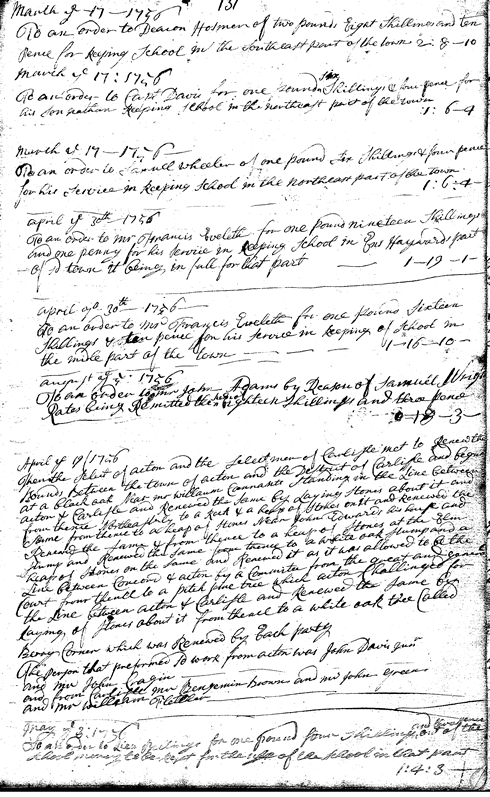 March ye 17 - 1756 131
To an order to Deacon Hosmer of two pounds Eight Shillings and ten
pence for keeping School in the southeast part of the town 2: 8 - 10
March ye 17: 1756
To an order to Capt Davis for one pound six Shillings & four pence for
his son Jonathan keeping school in the northeast part of the town
1: 6 - 4
March ye 17 - 1756
To an order to Samuell wheeler of one pound six Shillings & four pence
for his Service in keeping School in the northeast part of the town
1: 6: 4 -
april ye 30th 1756
To an order to mr Francis Eveleth for one pound nineteen Shillings
and one penny for his service in keeping School in Ens Haywards part
of sd town it being in full for that part 1 - 19 - 1 -
april ye 30th - 1756
To an order to mr Francis Eveleth for one pound Sixteen
Shillings & ten pence for his Service in keeping of School in
the midle part of the town 1 - 16 - 10 -
august ye 5: 1756
To an order to mr John Adams by Reason of Samuel
Rates being Remitted the Eighteen Shillings and three pence
0 - 18 - 3 -
April ye 19 1756
then the Select of acton and the Selectmen of Carlisle met to Renew the
Bounds between the town of acton and the District of Carlisle and begun
at a black oak Near mr william Cummants Standing in the Line between
acton & Carlisle and Renewed the same by Laying Stones about it and
from thence Northeasterly to a Rock & a heap of Stones on it and Renewed the
Same from thence to a heap of Stones Near John Edwards his house and
Renewed the Same & from thence to a heap of Stones at the Elm
and Renewed the Same from thence to a white oak Stump and a
heap of Stones on the Same and Renewed it as it was allowed to be the
Line between Concord & acton by a Committee from the great and general
Court from thence to a pitch pine tree which acton Challinged for
the Line between acton & Carlisle and Renewed the Same by
Laying of Stones about it from thence to a white oak tree Called
Berry Corner which was Renewed by Each party
The person that preformed sd work from acton was John Davis junr
and mr John Cragin
and from Carlisle mr Benjemin Brown and mr John Green
and mr william Fletcher
may ye 3: 1756
To an order to Lieut for one pound four Shillings and three pence
out of the
School money to be kept for the use of the school in that part
1: 4: 3